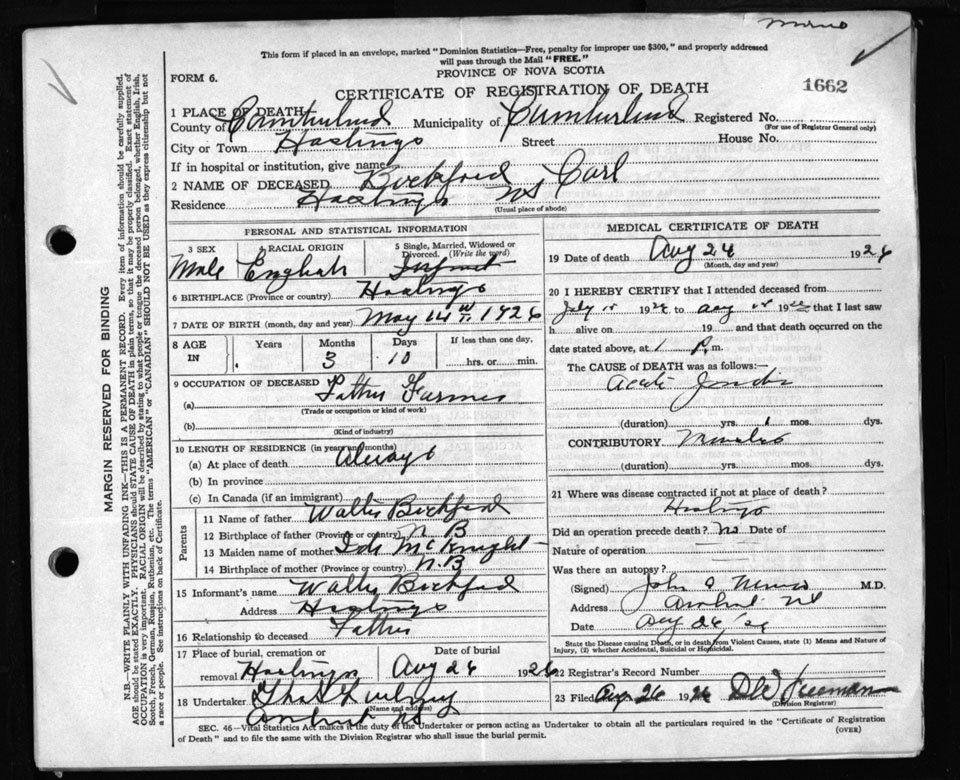 This form if placed in an envelope, marked "Dominion Statistics—Free, penalty for improper use $300," and properly addressed
will pass through the Mail "FREE."
FORM 6.
PROVINCE OF NOVA SCOTIA
CERTIFICATE OF REGISTRATION OF DEATH
1662
MARGIN RESERVED FOR BINDING
N.B.—WRITE PLAINLY WITH UNFADING INK—THIS IS A PERMANENT RECORD. Every item of information should be carefully supplied.
AGE should be stated EXACTLY. PHYSICIANS should STATE CAUSE OF DEATH in plain terms, so that it may be properly classified. Exact statement of
OCCUPATION is very important. RACIAL ORIGIN will be described by stating to what people or tongue the deceased person belonged, whether English, Irish,
Scotch, French, German, Russian, Ruthenian, etc. The terms "AMERICAN" or "CANADIAN" SHOULD NOT BE USED as they express citizenship but not
a race or people. See instructions on back of Certificate.
1 PLACE OF DEATH
County of Cumberland Municipality of Cumberland Registered No.
(For use of Registrar General only)
City or Town Hastings Street House No.
If in hospital or institution, give name
2 NAME OF DECEASED Carl
Residence Hastings NS
(Usual place of abode)
PERSONAL AND STATISTICAL INFORMATION
3 SEX Male
4 RACIAL ORIGIN English
5 Single, Married, Widowed or
Divorced. (Write the word)
Infant
6 BIRTHPLACE (Province or country) Hastings
7 DATE OF BIRTH (month, day and year) May 14th 1926
8 AGE IN Years Months 3 Days 10 If less than one day, hrs. or min.
9 OCCUPATION OF DECEASED Father Farmer
(a) (Trade or occupation or kind of work)
(b) (Kind of industry)
10 LENGTH OF RESIDENCE (in years and months)
(a) At place of death Always
(b) In province
(c) In Canada (if an immigrant)
Parents
11 Name of father Walter
12 Birthplace of father (Province or country) N B
13 Maiden name of mother Ida McKnight
14 Birthplace of mother (Province or country) N.B
15 Informant's name Walter
Address Hastings
16 Relationship to deceased Father
17 Place of burial, cremation or removal Hastings
Date of burial Aug 26 1926
18 Undertaker
(Name and address)
Amherst NS
MEDICAL CERTIFICATE OF DEATH
19 Date of death Aug 24 1926
(Month, day and year)
20 I HEREBY CERTIFY that I attended deceased from
July 19 to Aug 19 that I last saw
h alive on 19 and that death occurred on
the date stated above, at 1 P. m.
The CAUSE of DEATH was as follows:—
(duration) yrs. mos. dys.
CONTRIBUTORY
(duration) yrs. mos. dys.
21 Where was disease contracted if not at place of death?
Hastings
Did an operation precede death? No Date of
Nature of operation
Was there an autopsy?
(Signed) John A M.D.
Address Amherst NS
Date Aug 26/26
State the Disease causing Death, or in death from Violent Causes, state (1) Means and Nature of
Injury, (2) whether Accidental, Suicidal or Homicidal.
22 Registrar's Record Number
23 Filed Aug 26 1926 DW Freeman
(Division Registrar)
SEC. 46—Vital Statistics Act makes it the duty of the Undertaker or person acting as Undertaker to obtain all the particulars required in the "Certificate of Registration
of Death" and to file the same with the Division Registrar who shall issue the burial permit.
(OVER)